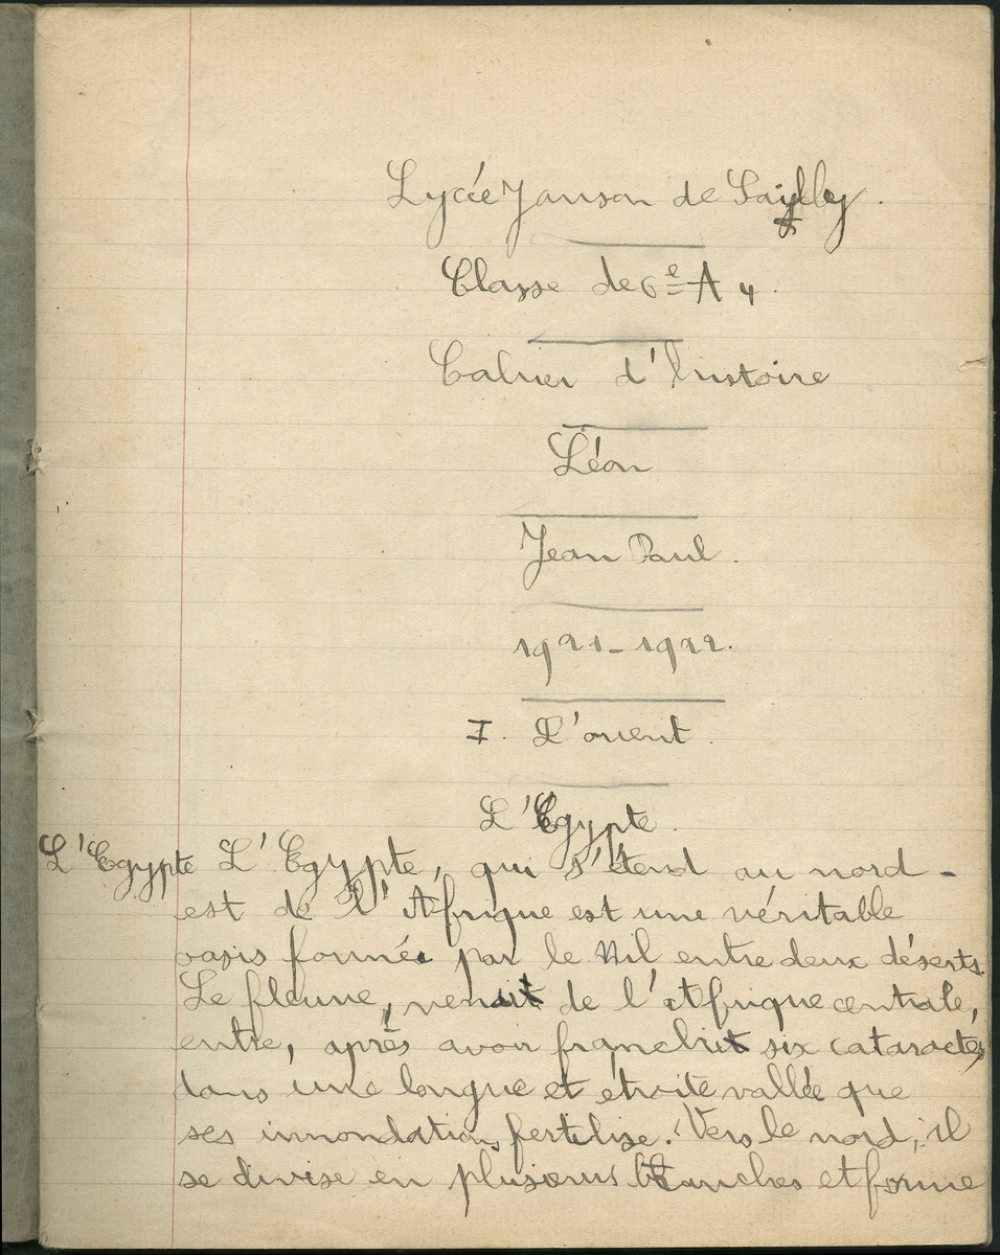 Lycée Janson de Sailly.
Classe de 6e A 4.
Cahier d'histoire
Léon
Jean Paul.
1921-1922.
I. L'orient.
L'Egypte.
L'Egypte L'Egypte, qui s'étend au nord-
est de l'Afrique est une véritable
oasis formée par le Nil entre deux déserts.
Le fleuve, venant de l'Afrique centrale,
entre, après avoir franchit six cataractes,
dans une longue et étroite vallée que
ses innondations fertilise. Vers le nord, il
se divise en plusieurs branches et forme